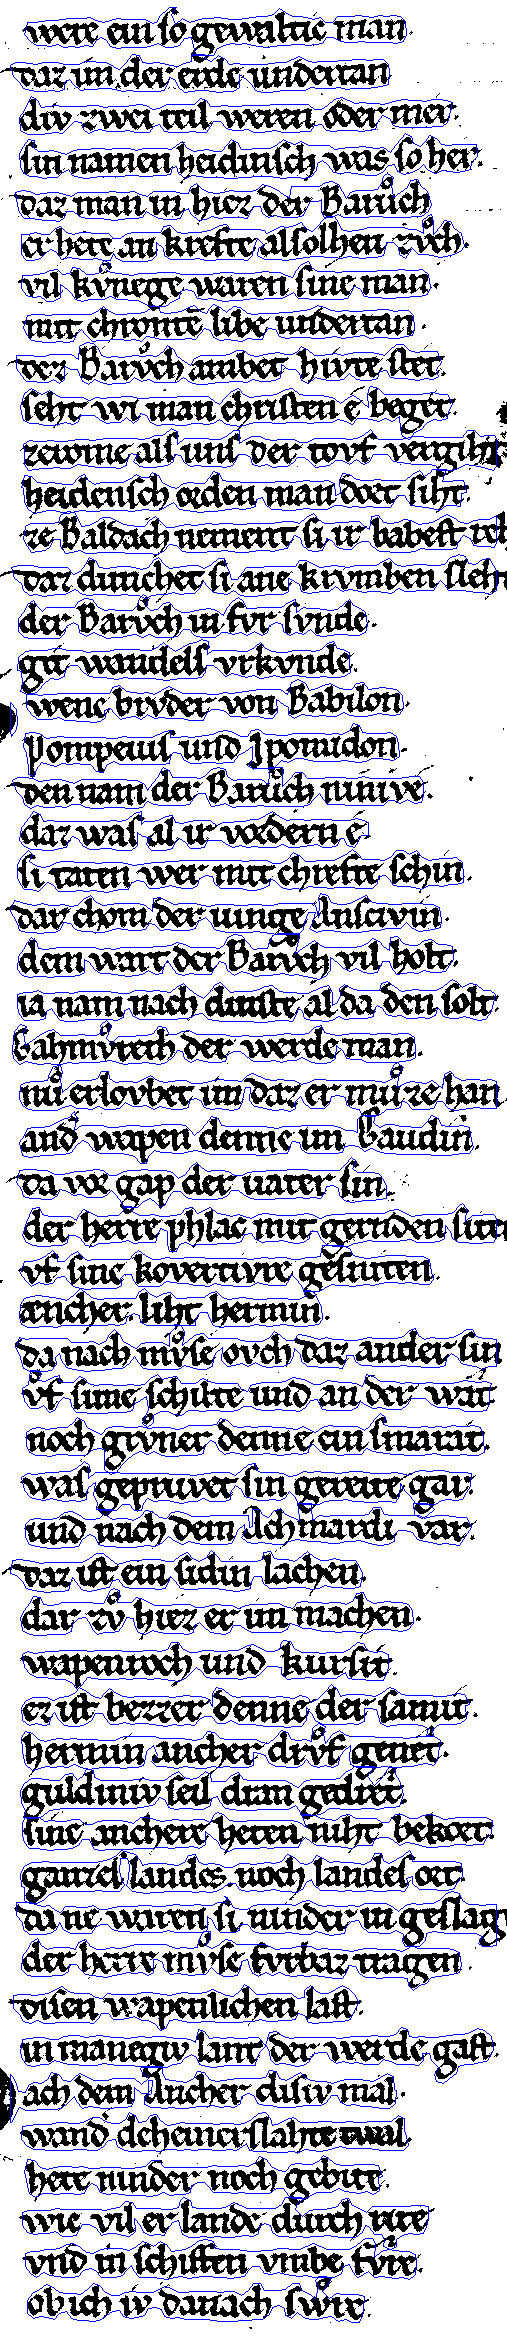 were ein so gewaltic man.
daz im der erde undertan
div zwei teil weren oder mer.
sin namen heidinisch was so her.
daz man in hiez der Baruͦch
er hete an krefte alsolhen zvͦch.
vil kvͦnege waren sine man.
mit chrontē libe undertan.
der Barvͦch ambet hivte stet.
seht wi man christen e beget.
zerome als uns der tovf vergiht
heidensch orden man dort siht.
ze Baldach nement si ir babest reh
daz dunchet si ane krvmben sleht
der Barvͦch in fvr svnde.
git wandels vrkvnde.
wene brvder von Babilon.
Pompeius und Ipomidon.
den nam der Baruͦch ninive.
daz was al ir vordern e.
si taten wer mit chrefte schin.
dar chom der iunge Anscivin.
dem wart der Barvͦch vil holt.
ia nam nach dinste al da den solt.
Gahmvͦreth der werde man.
nuͦ erlovbet im daz er muͦze han.
and wapen denne im Gaudin.
da vor gap der vater sin.
der herre phlac mit gernden siten
vf sine kovertivre gesniten.
ancher liht hermin.
da nach mvͦse ovch daz ander sin
vͦf sime schilte und an der wat
noch grvͦner denne ein smarat.
was gepruvet sin gereite gar.
und nach dem Achmardi var.
daz ist ein sidin lachen.
dar zvͦ hiez er im machen.
wapenroch und kursit.
ez ist bezzer denne der samit.
hermin ancher drvͦf genet.
guldiniv seil dran gedret.
sine anchere heten niht bekort.
ganzes landes noch landes ort.
da ne waren si ninder in geslagen
der herre mvͦse fvrbaz tragen.
disen wapenlichen last.
in manegiv lant der werde gast.
ach dem Ancher disiv mal.
wand deheinerslahte twal
hete ninder noch gebite.
wie vil er lande durch rite
vnd in schiffen vmbe fvͦre.
ob ich iv danach swͦre.